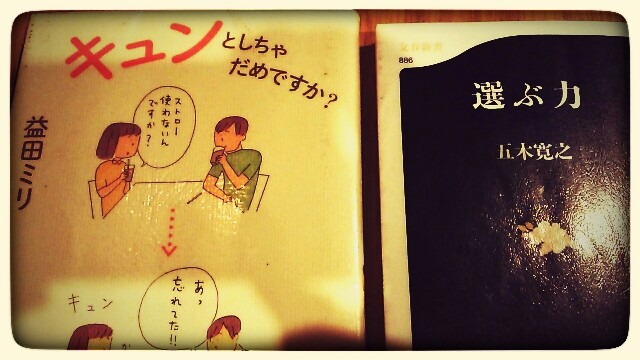 キュンとしちゃ
だめですか?
益田ミリ
ストロー
使わないん
ですか?
あっ
忘れてた!!
キュン
文春新書
886
選ぶ力
五木寛之